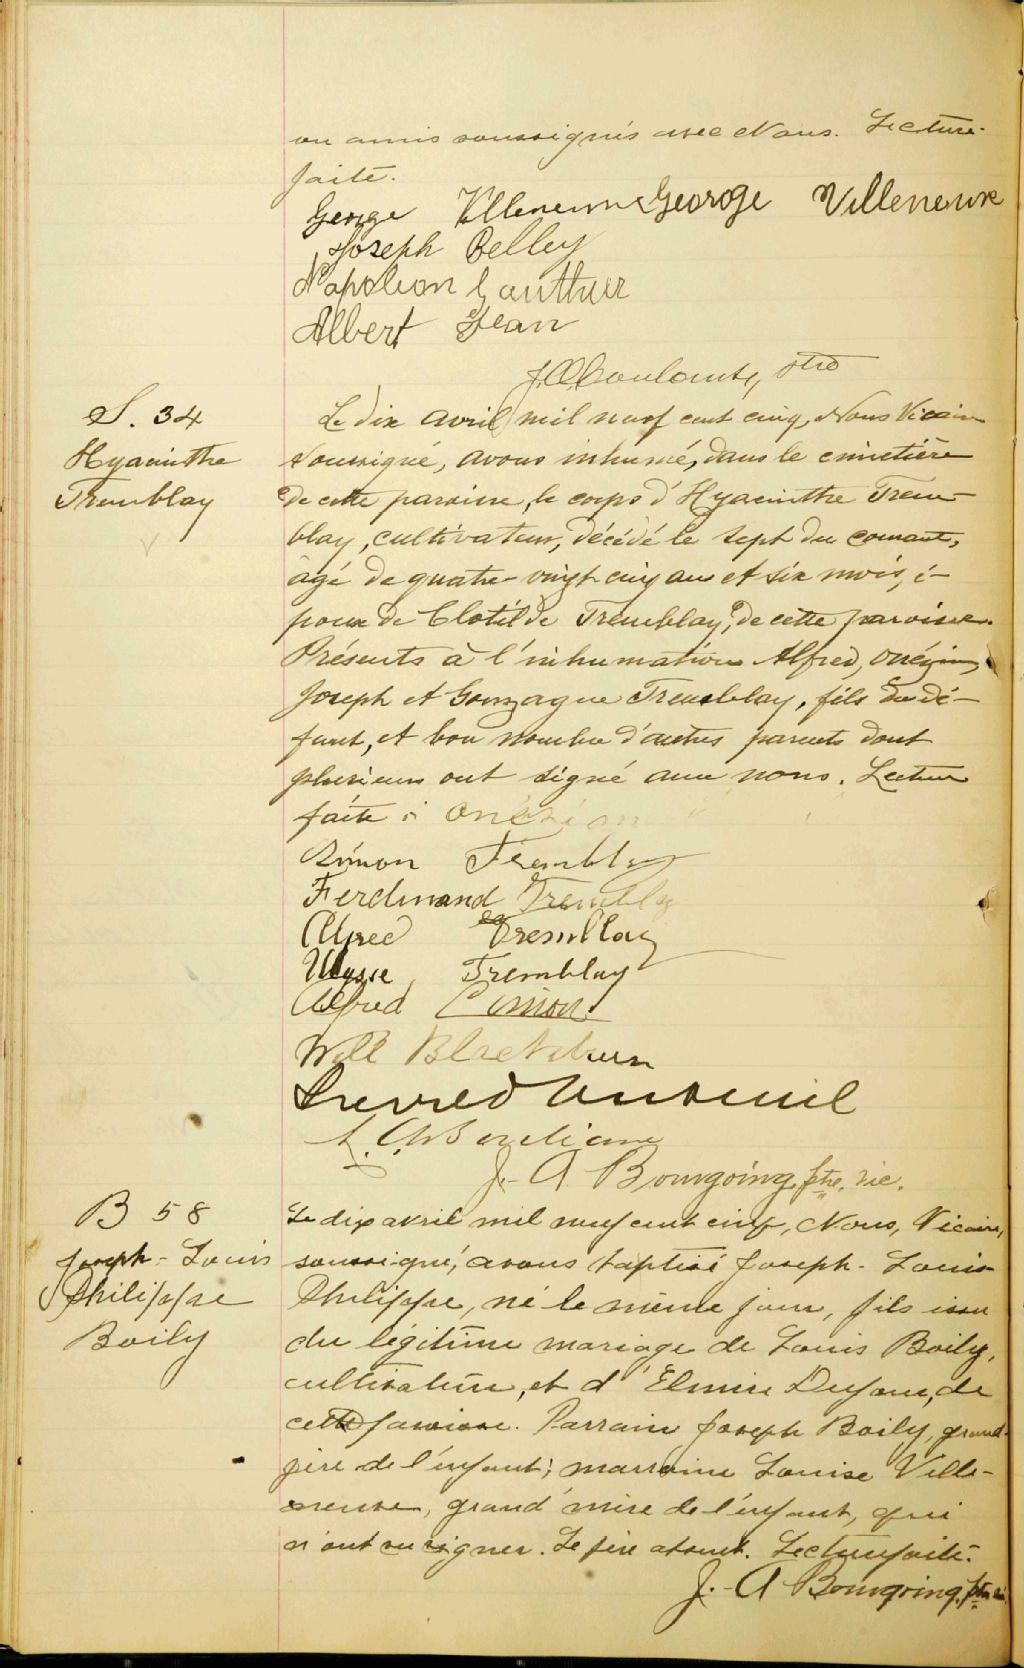 ou amis soussignés avec Nous. Lecture
faite.
George Villeneuve George Villeneuve
Joseph Belley
Napoleon Gauthier
Albert Jean
ptre
S. 34
Hyacinthe
Tremblay
Le dix avril mil neuf cent cinq, Nous Vicaire
soussigné, avons inhumé, dans le cimetière
de cette paroisse, le corps d'Hyacinthe Trem-
blay, cultivateur, décédé le sept du courant,
âgé de quatre-vingt cinq ans et six mois, é-
poux de Clotilde Tremblay, de cette paroisse.
Présents à l'inhumation Alfred, Onézim,
Joseph et Gonzague Tremblay, fils du dé-
funt, et bon nombre d'autres parents dont
plusieurs ont signé avec nous. Lecture
faite
Simon Tremblay
Ferdinand Tremblay
Alfred Tremblay
Ulysse Tremblay
Alfred Simon
Will Blackburn
J.-A Bourgoing, ptre, vic.
B 58
Joseph-Louis
Philippe
Boily
Le dix avril mil neuf cent cinq, Nous, Vicaire,
soussigné, avons baptisé Joseph-Louis
Philippe, né le même jour, fils issu
du légitime mariage de Louis Boily,
cultivateur, et d'Elmire Dufour, de
cette paroisse. Parrain Joseph Boily, grand-
père de l'enfant; marraine Louise Ville-
neuve, grand'mère de l'enfant, qui
n'ont su signer. Le père absent. Lecture faite.
J.-A Bourgoing, ptre vic.